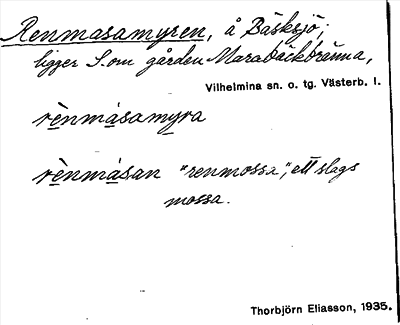 Renmasamyren, å Bäsksjö;
ligger S. om gården Marabäckbränna,
Vilhelmina sn. o. tg. Västerb. l.
rènmásamyra
rènmásan "renmossa", ett slags
mossa.
Thorbjörn Eliasson, 1935.